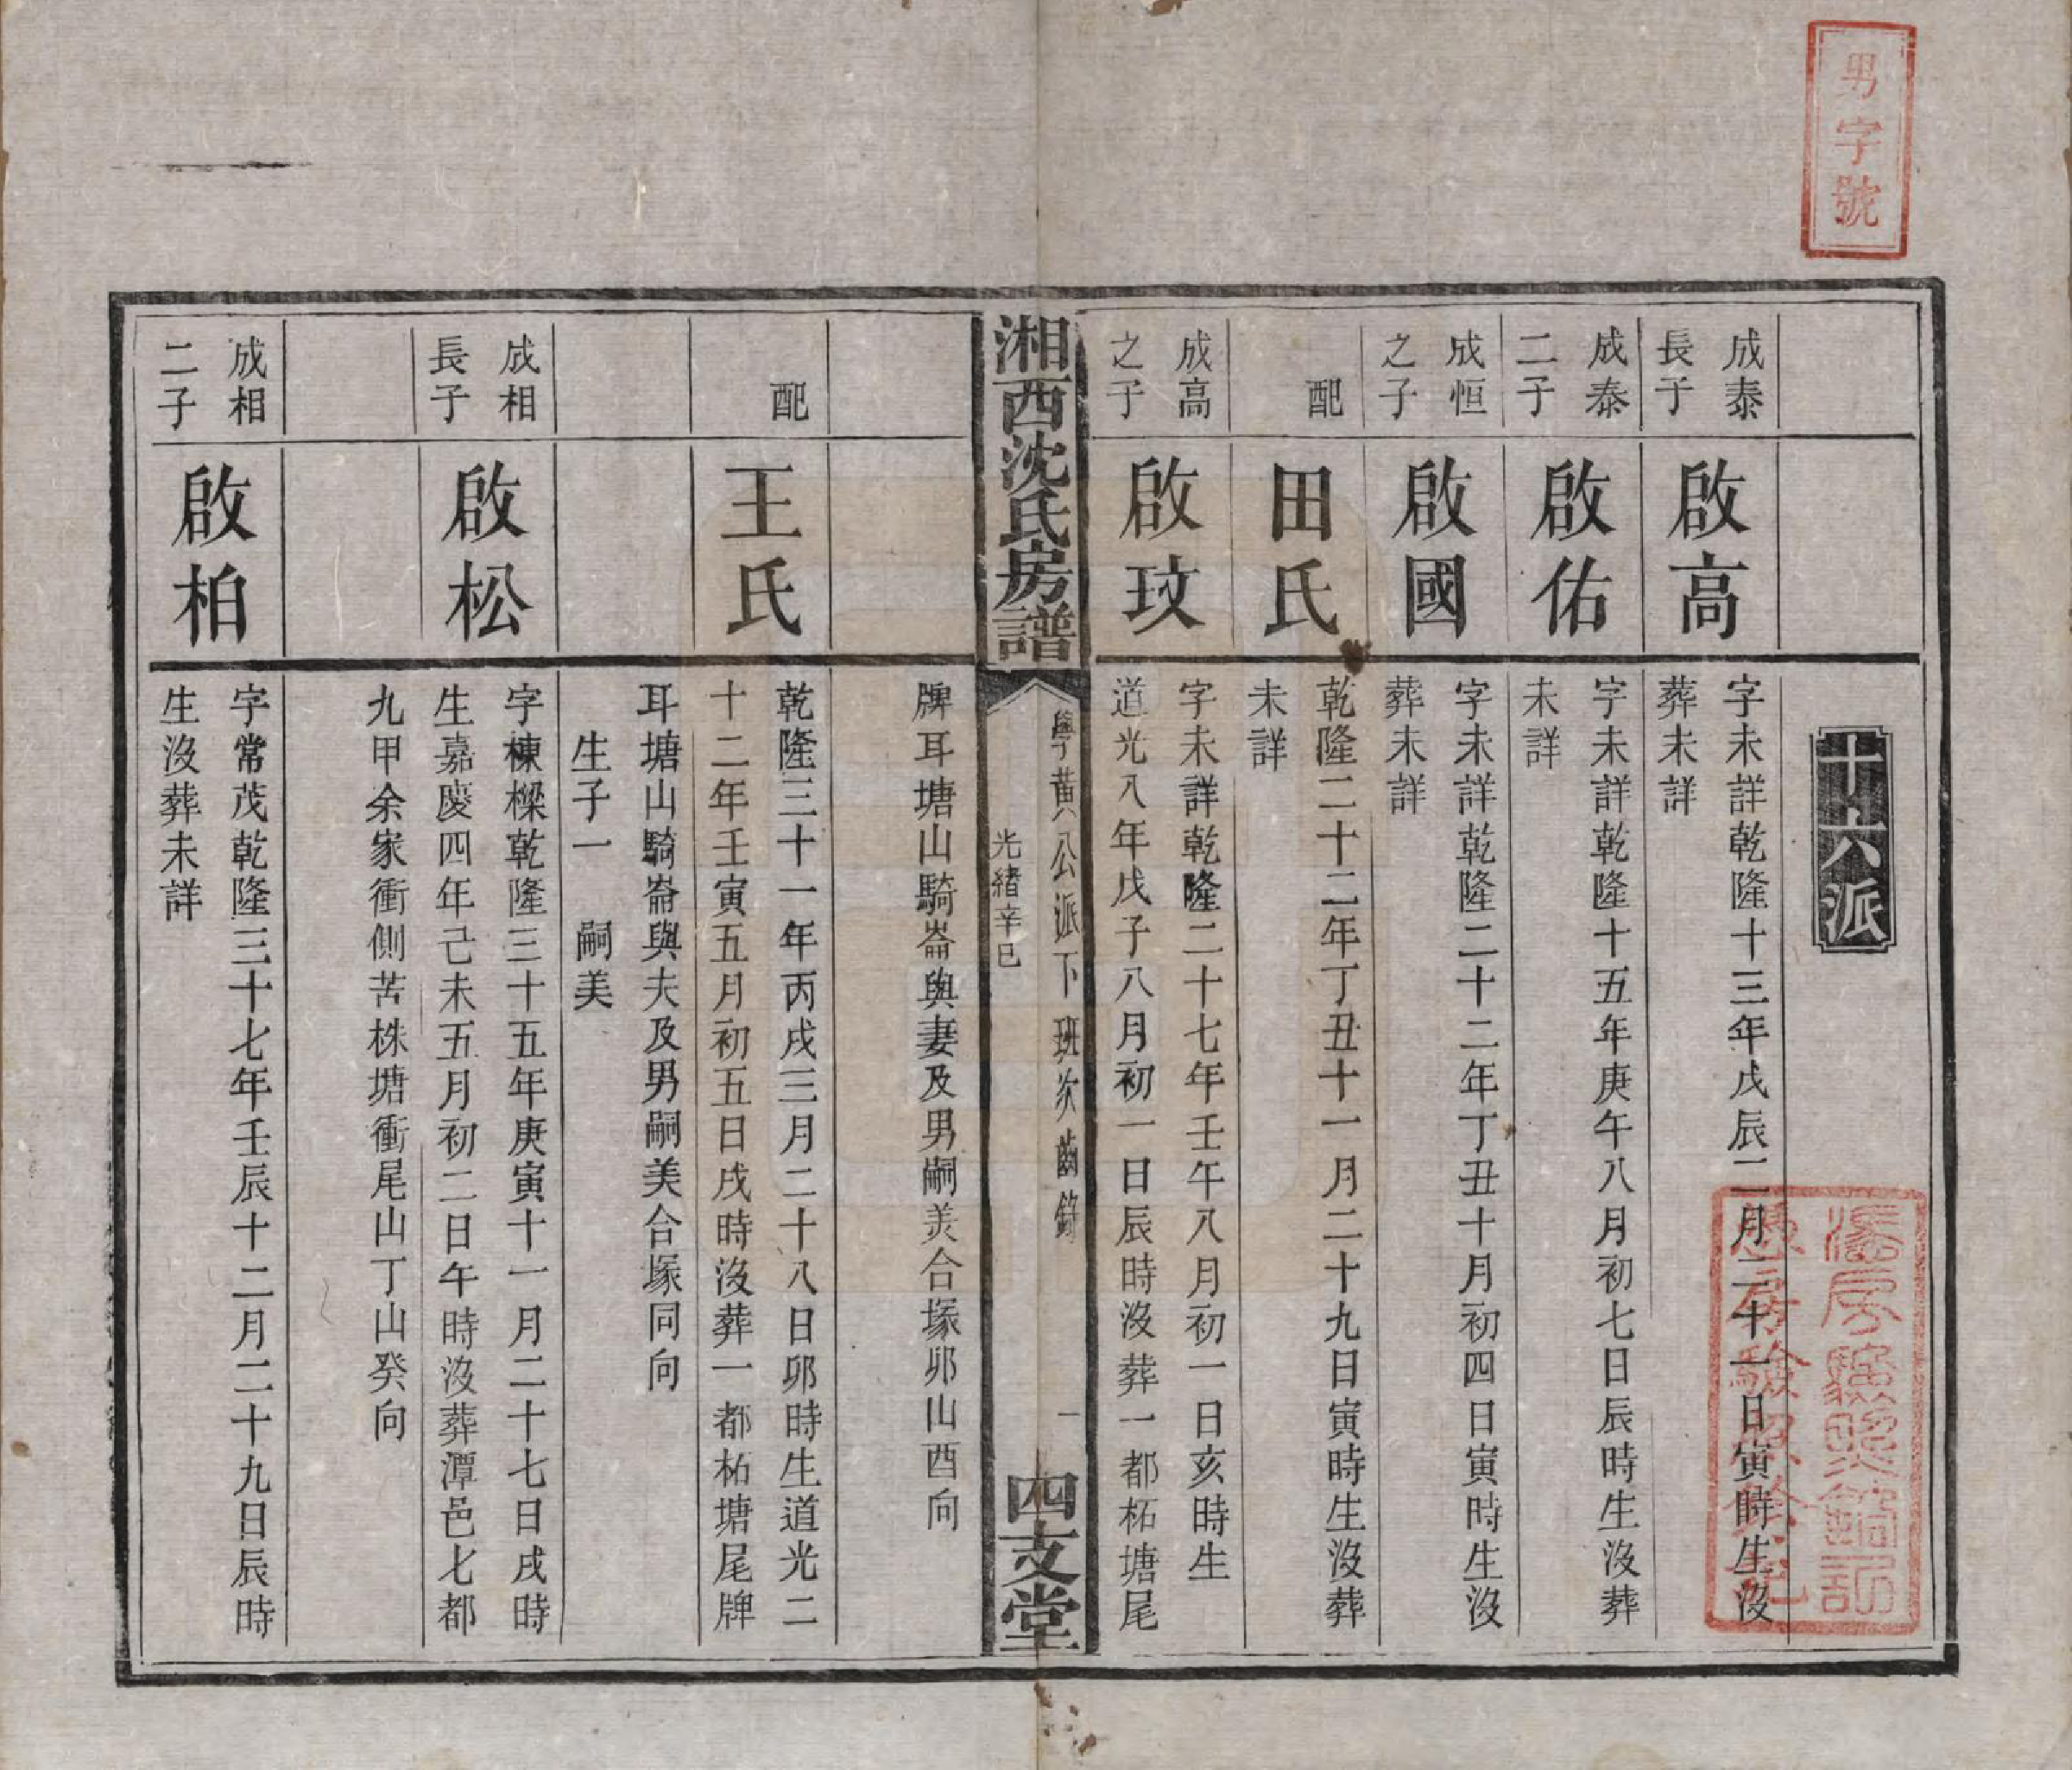 男字號
十六派
成泰
長子
啟高
字未詳乾隆十三年戊辰二月二十一日寅時生沒
葬未詳
成泰
二子
啟佑
字未詳乾隆十五年庚午八月初七日辰時生沒葬
未詳
成恒
之子
啟國
字未詳乾隆二十二年丁丑十月初四日寅時生沒
葬未詳
配
田氏
乾隆二十二年丁丑十一月二十九日寅時生沒葬
未詳
成高
之子
啟玟
字未詳乾隆二十七年壬午八月初一日亥時生
道光八年戊子八月初一日辰時沒葬一都柘塘尾
湘西沈氏房譜
學黃公派下班次齒錄
光緒辛巳
一
四支堂
牌耳塘山騎崙與妻及男嗣美合塚卯山酉向
配
王氏
乾隆三十一年丙戌三月二十八日卯時生道光二
十二年壬寅五月初五日戌時沒葬一都柘塘尾牌
耳塘山騎崙與夫及男嗣美合塚同向
生子一 嗣美
成相
長子
啟松
字棟樑乾隆三十五年庚寅十一月二十七日戌時
生嘉慶四年己未五月初二日午時沒葬潭邑七都
九甲余家衝側苦株塘衝尾山丁山癸向
成相
二子
啟柏
字常茂乾隆三十七年壬辰十二月二十九日辰時
生沒葬未詳